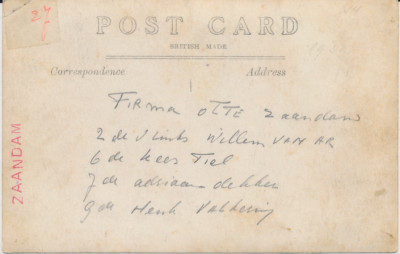 24
POST CARD
BRITISH MADE
Correspondence
Address
FIRMA OTTE Zaandam
2 de links Willem VAN AR
6 de Kees Tiel
7 de adriaan dekker
9 de Henk
ZAANDAM